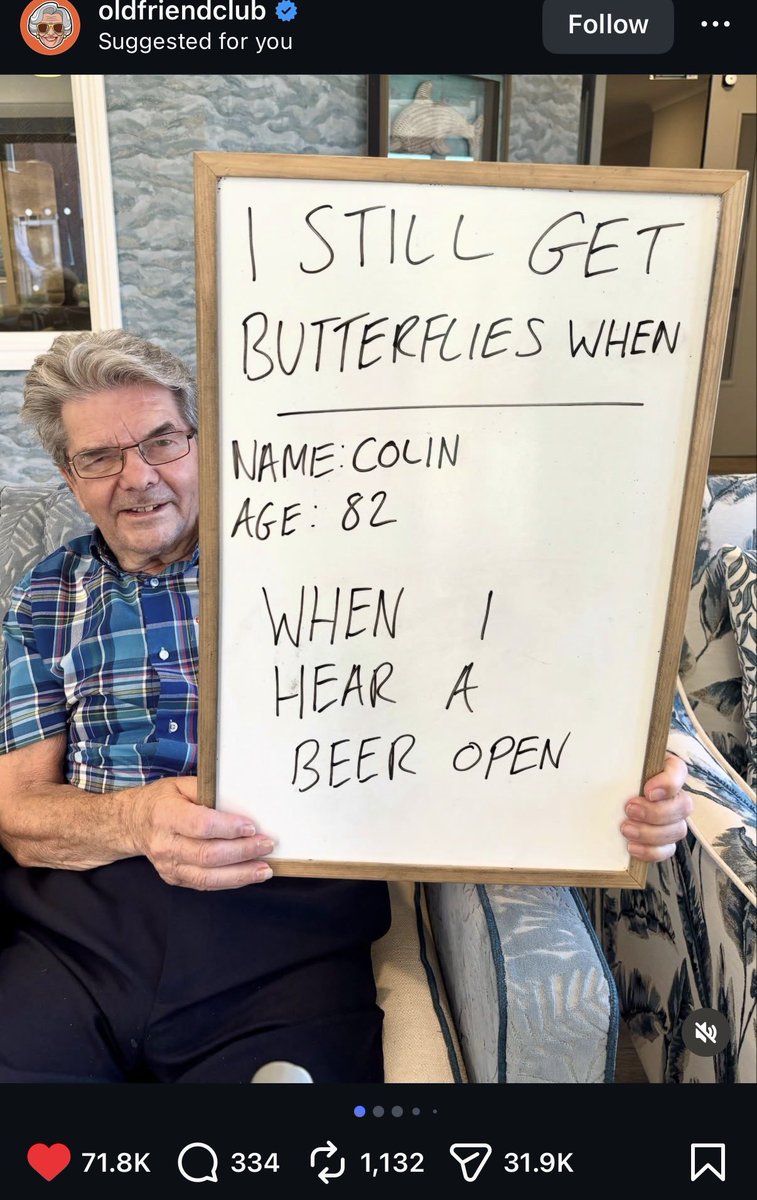 oldfriendclub
Suggested for you
Follow
I STILL GET
BUTTERFLIES WHEN
NAME: COLIN
AGE: 82
WHEN I
HEAR A
BEER OPEN
71.8K 334 1,132 31.9K